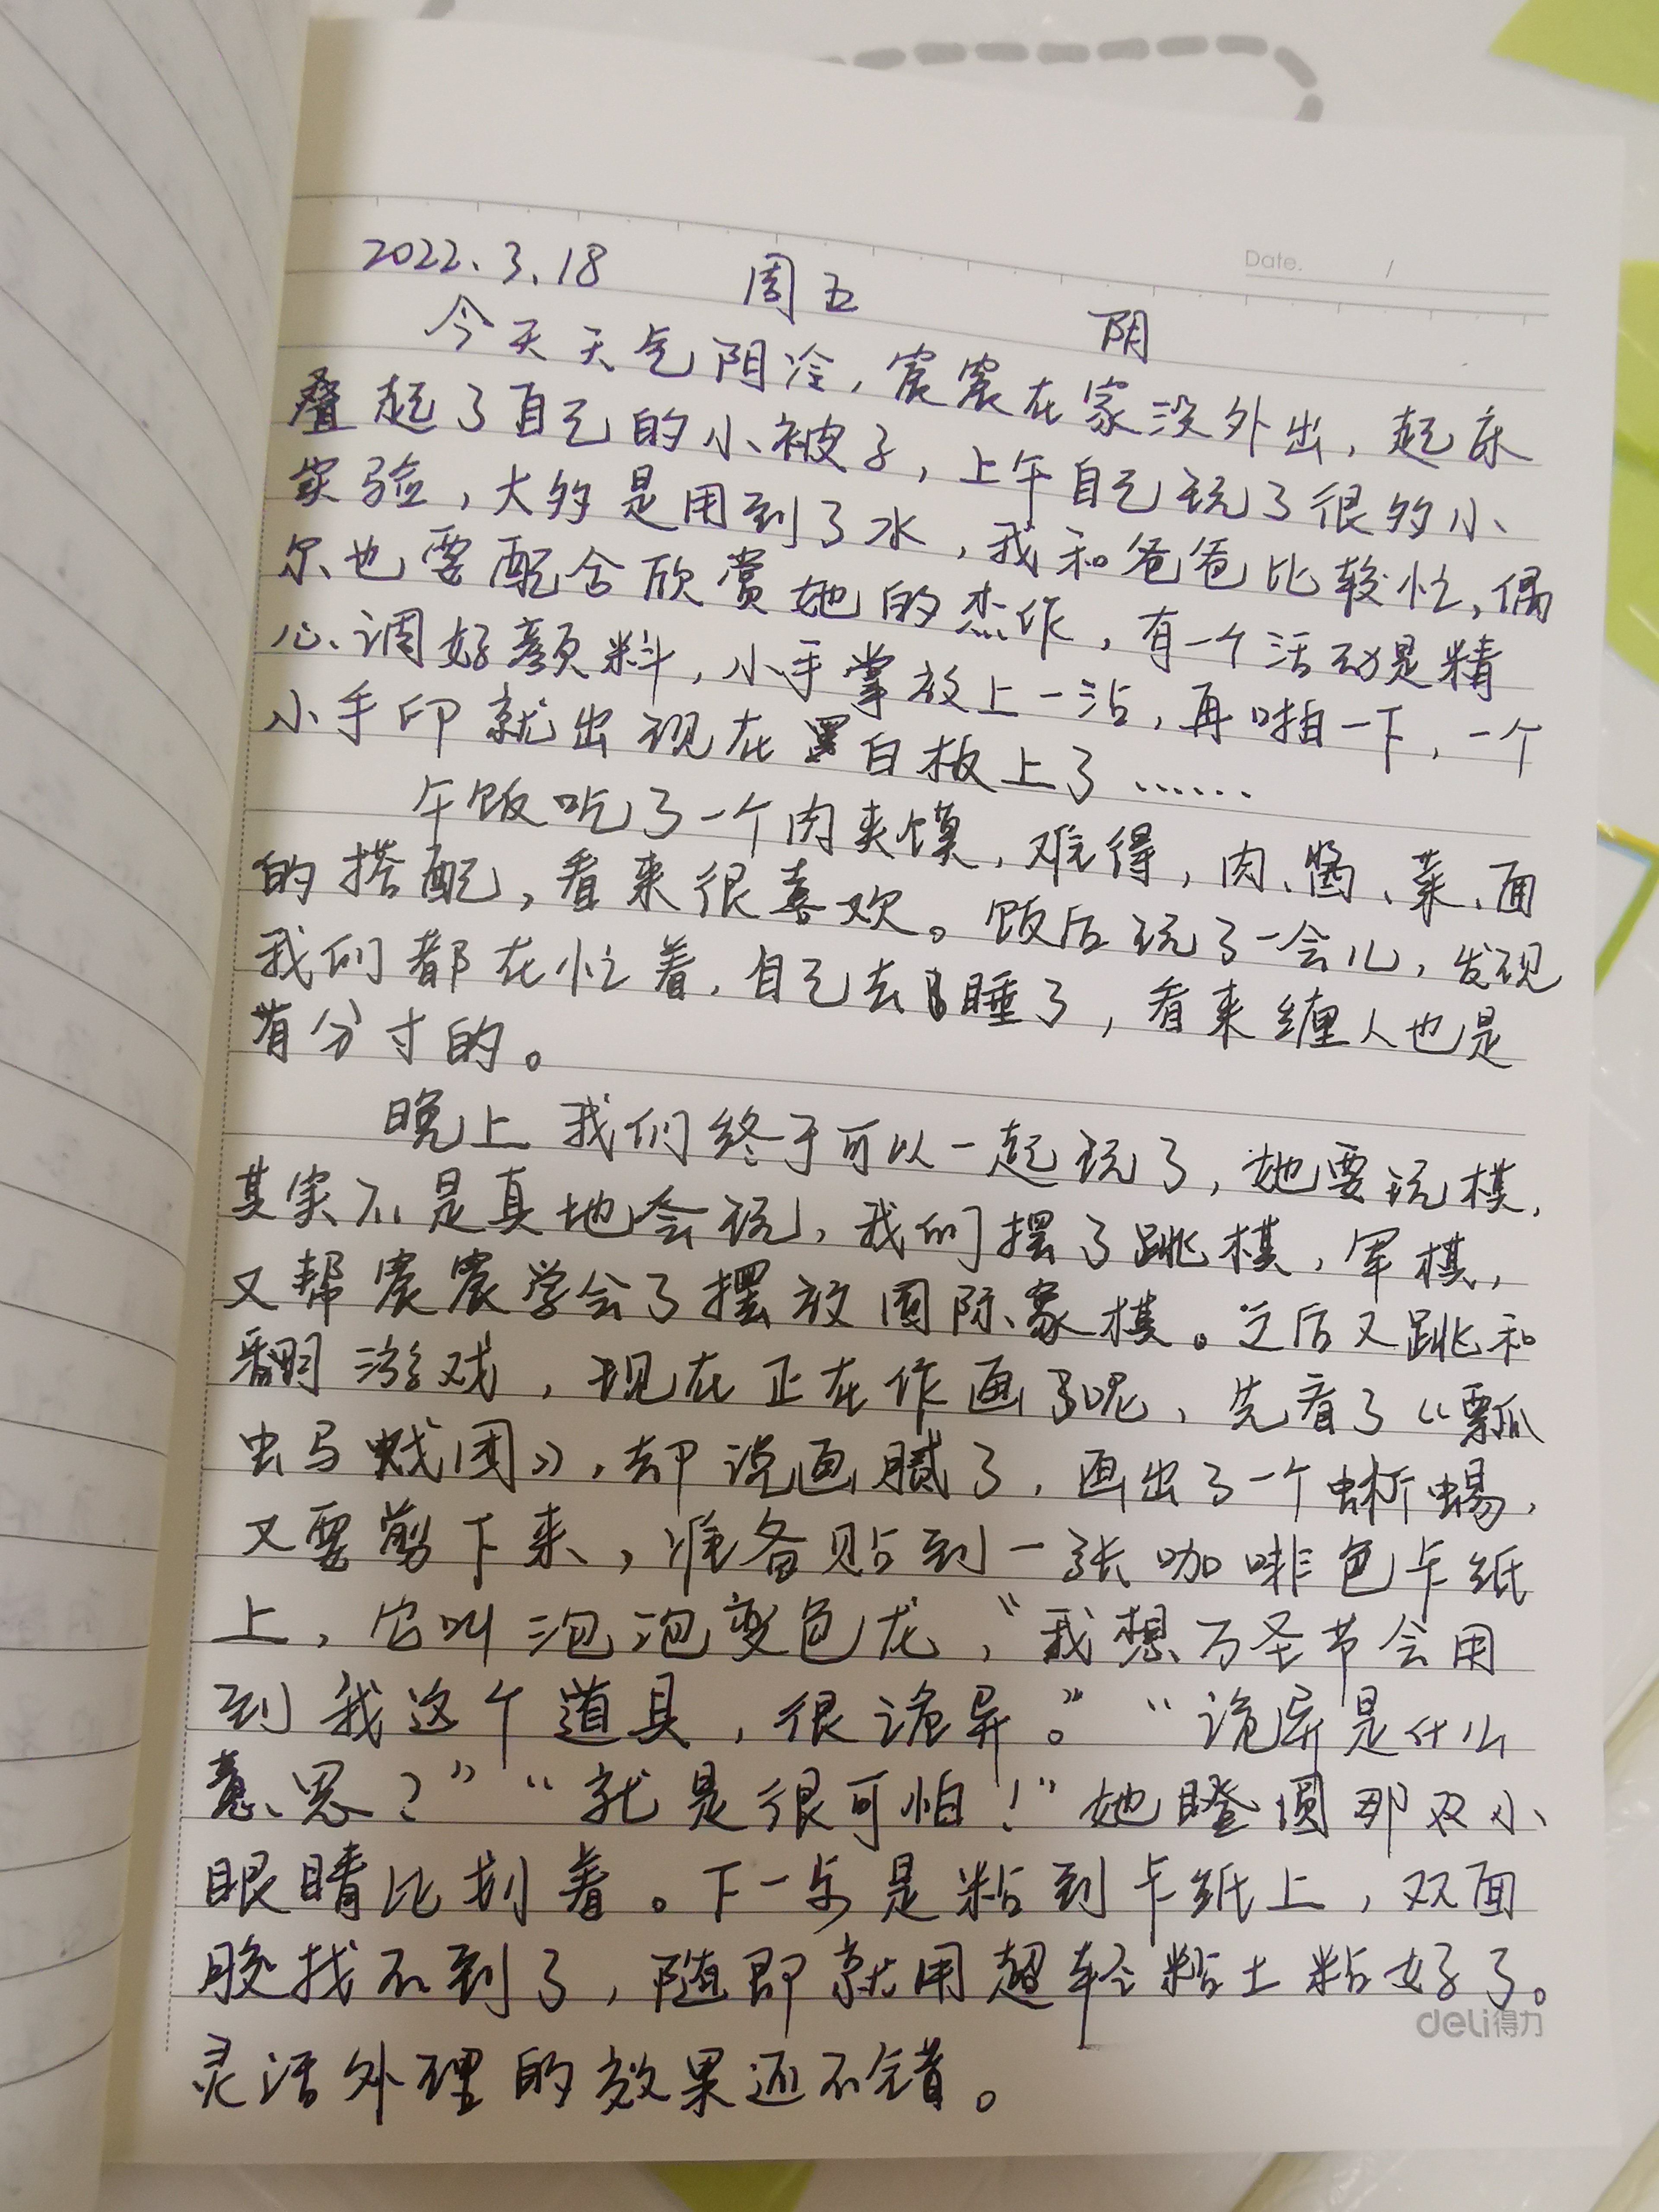 Date. /
2022.3.18 周五 阴
今天天气阴冷，宸宸在家没外出，起床
叠起了自己的小被子，上午自己玩了很多小
实验，大多是用到了水，我和爸爸比较忙，偶
尔也要配合欣赏她的杰作，有一个活动是精
心调好颜料，小手掌放上一沾，再啪一下，一个
小手印就出现在白板上了……
午饭吃了一个肉夹馍，难得，肉、酱、菜、面
的搭配，看来很喜欢。饭后玩了一会儿，发现
我们都在忙着，自己去睡了，看来缠人也是
有分寸的。
晚上我们终于可以一起玩了，她要玩棋，
其实不是真地会玩，我们摆了跳棋，军棋，
又帮宸宸学会了摆放国际象棋。之后又跳和
翻游戏，现在正在作画了呢，先看了《瓢
虫马戏团》，却说画腻了，画出了一个蜥蜴，
又要剪下来，准备贴到一张咖啡色卡纸
上，它叫泡泡变色龙，“我想万圣节会用
到我这个道具，很诡异。”“诡异是什么
意思？”“就是很可怕！”她瞪圆那双小
眼睛比划着。下一步是粘到卡纸上，双面
胶找不到了，随即就用超轻粘土粘好了。
deli得力
灵活处理的效果还不错。